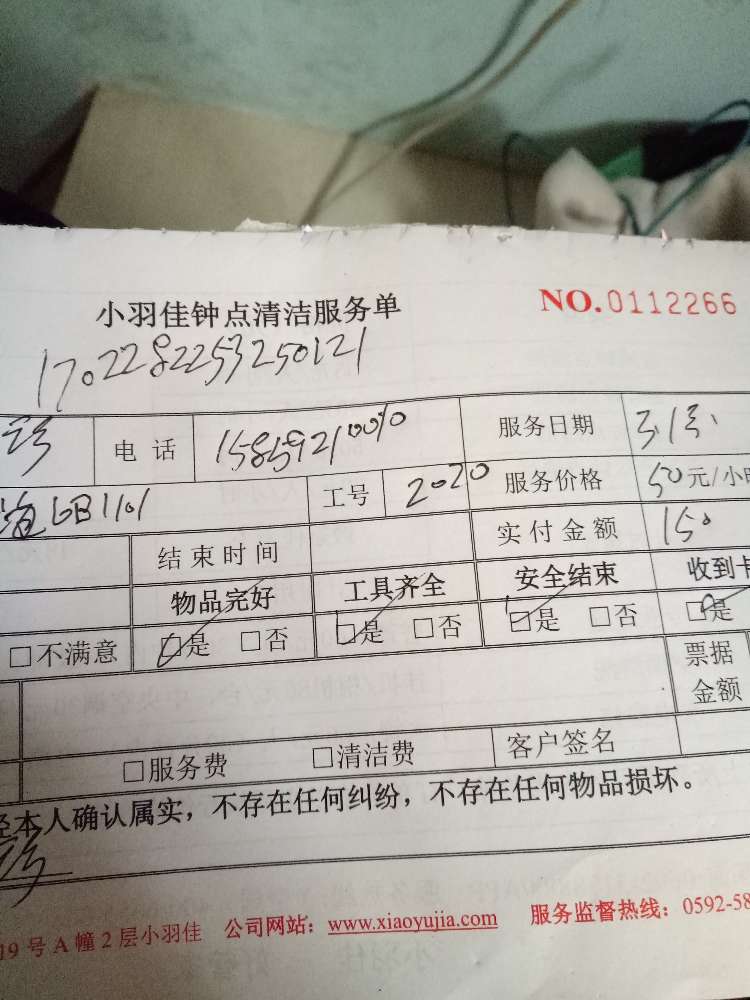 小羽佳钟点清洁服务单 NO.0112266
1702282253250121
电话 服务日期
6B1101 工号 2020 服务价格 50元/小时
结束时间 实付金额 150
物品完好 工具齐全 安全结束 收到卡
□不满意 □是 □否 □是 □否 □是 □否 □是
票据
金额
□服务费 □清洁费 客户签名
经本人确认属实，不存在任何纠纷，不存在任何物品损坏。
19号A幢2层小羽佳 公司网站：www.xiaoyujia.com 服务监督热线：0592-58